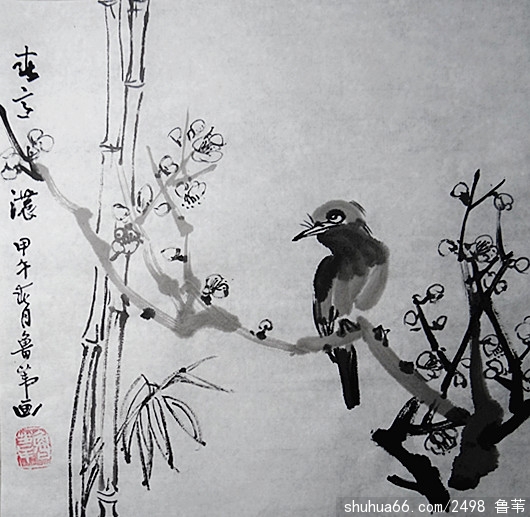 春意濃 甲午春月鲁苇画
shuhua66.com/2498 鲁苇